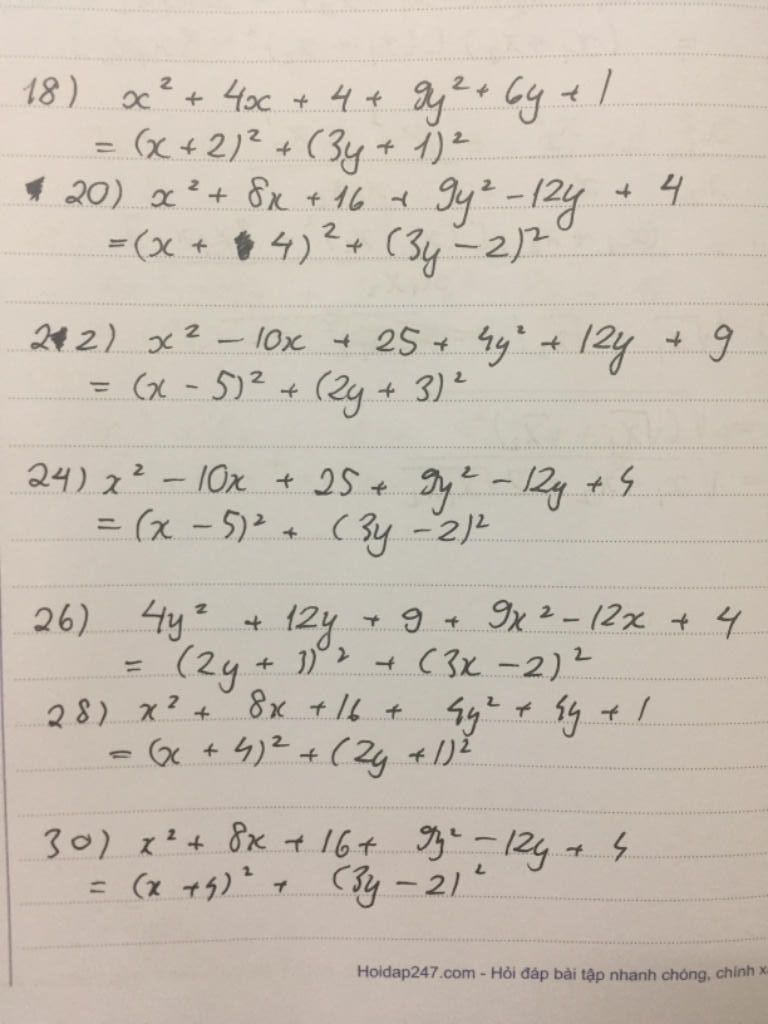 18) x² + 4x + 4 + 9y² + 6y + 1
= (x + 2)² + (3y + 1)²
20) x² + 8x + 16 + 9y² - 12y + 4
= (x + 4)² + (3y - 2)²
22) x² - 10x + 25 + 4y² + 12y + 9
= (x - 5)² + (2y + 3)²
24) x² - 10x + 25 + 9y² - 12y + 4
= (x - 5)² + (3y - 2)²
26) 4y² + 12y + 9 + 9x² - 12x + 4
= (2y + 3)² + (3x - 2)²
28) x² + 8x + 16 + 4y² + 4y + 1
= (x + 4)² + (2y + 1)²
30) x² + 8x + 16 + 9y² - 12y + 4
= (x + 4)² + (3y - 2)²
Hoidap247.com - Hỏi đáp bài tập nhanh chóng, chính x